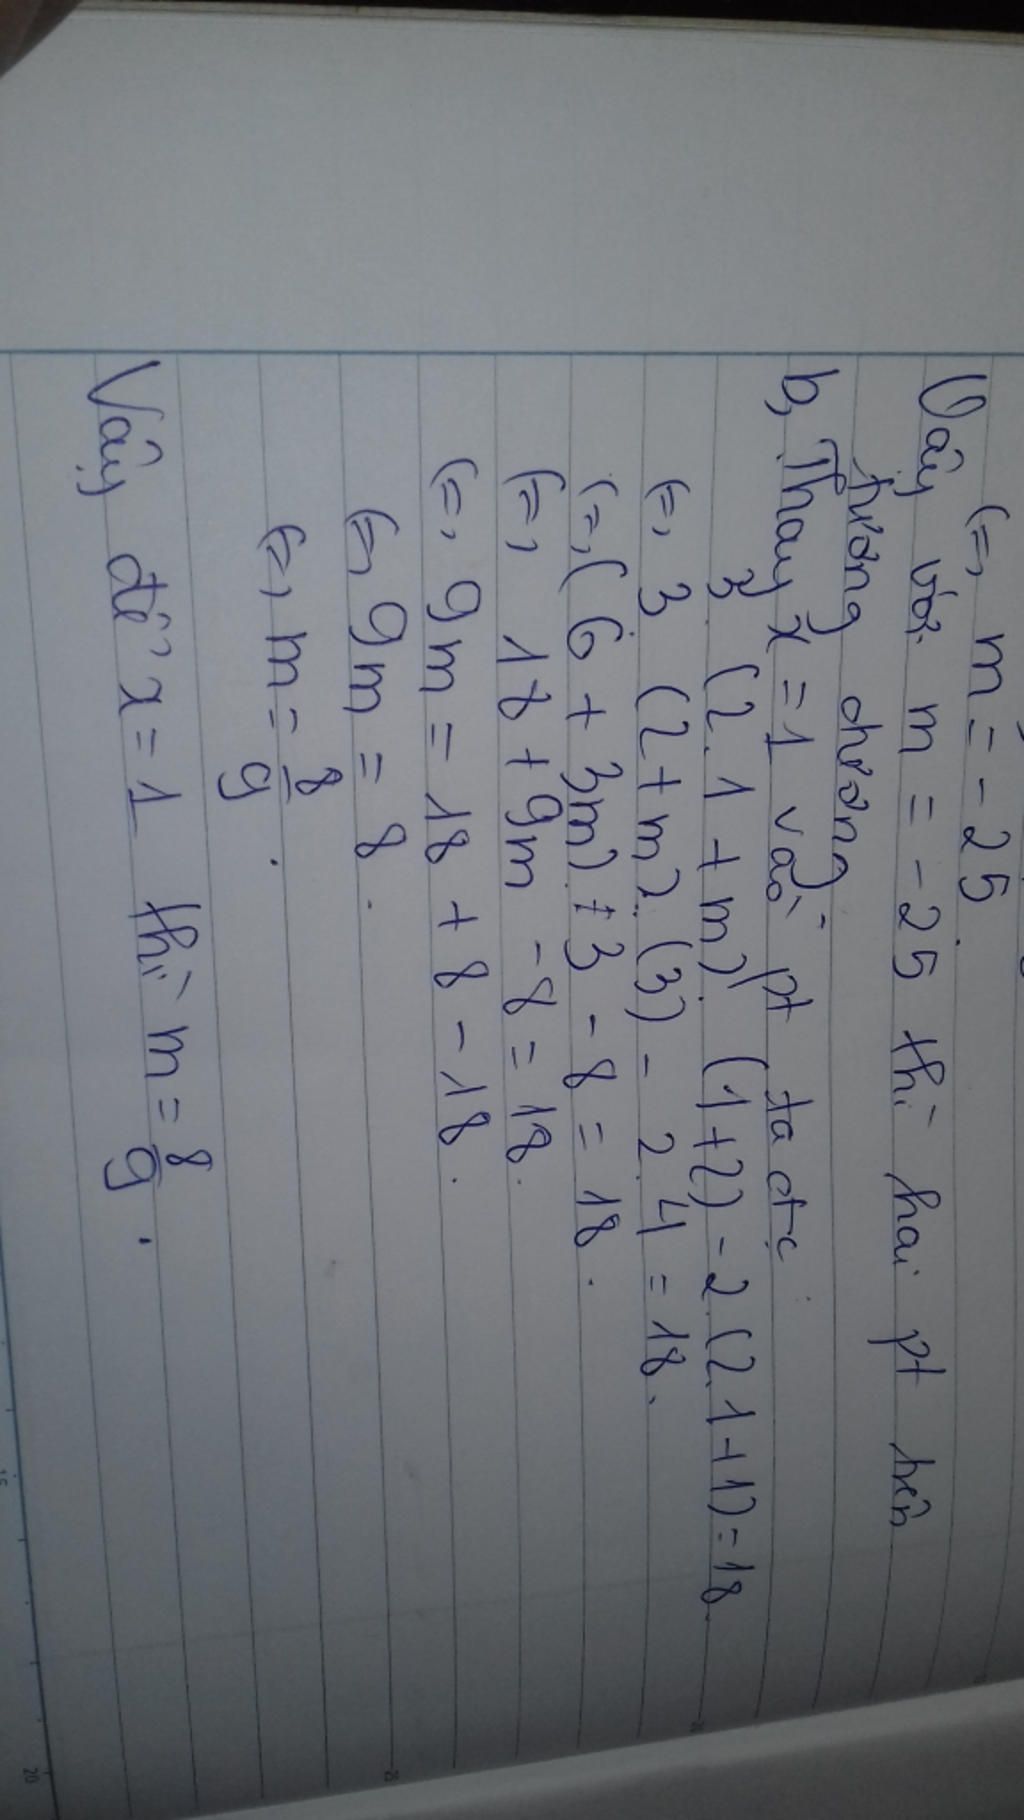 (=, m = -25.
Vậy với m = -25 thì hai pt trên
tương đương
b, Thay x = 1 vào pt ta đc
3. (2.1 + m). (1+2) - 2.(2.1+1) = 18.
(=, 3 (2+m). (3) - 2.4 = 18.
(=, (6 + 3m). 3 - 8 = 18.
(=, 18 + 9m - 8 = 18.
(=, 9m = 18 + 8 - 18.
(=, 9m = 8.
(=, m = 8/9.
Vậy để x = 1 thì m = 8/9.